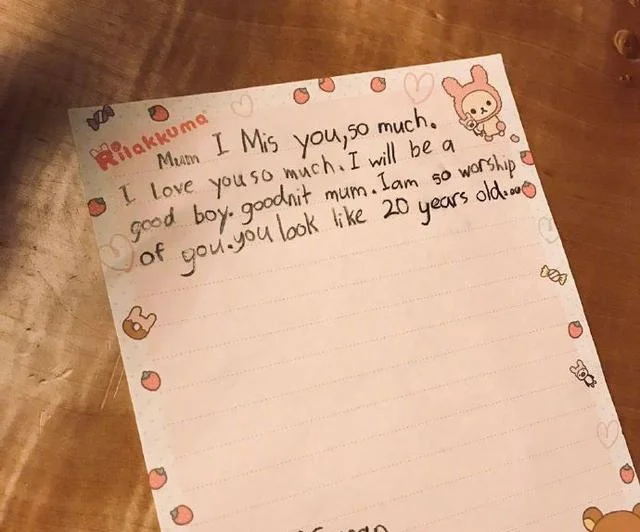 Rilakkuma
Mum I Mis you,so much.
I love you so much. I will be a
good boy. goodnit mum. I am so worship
of gou. you look like 20 years old....